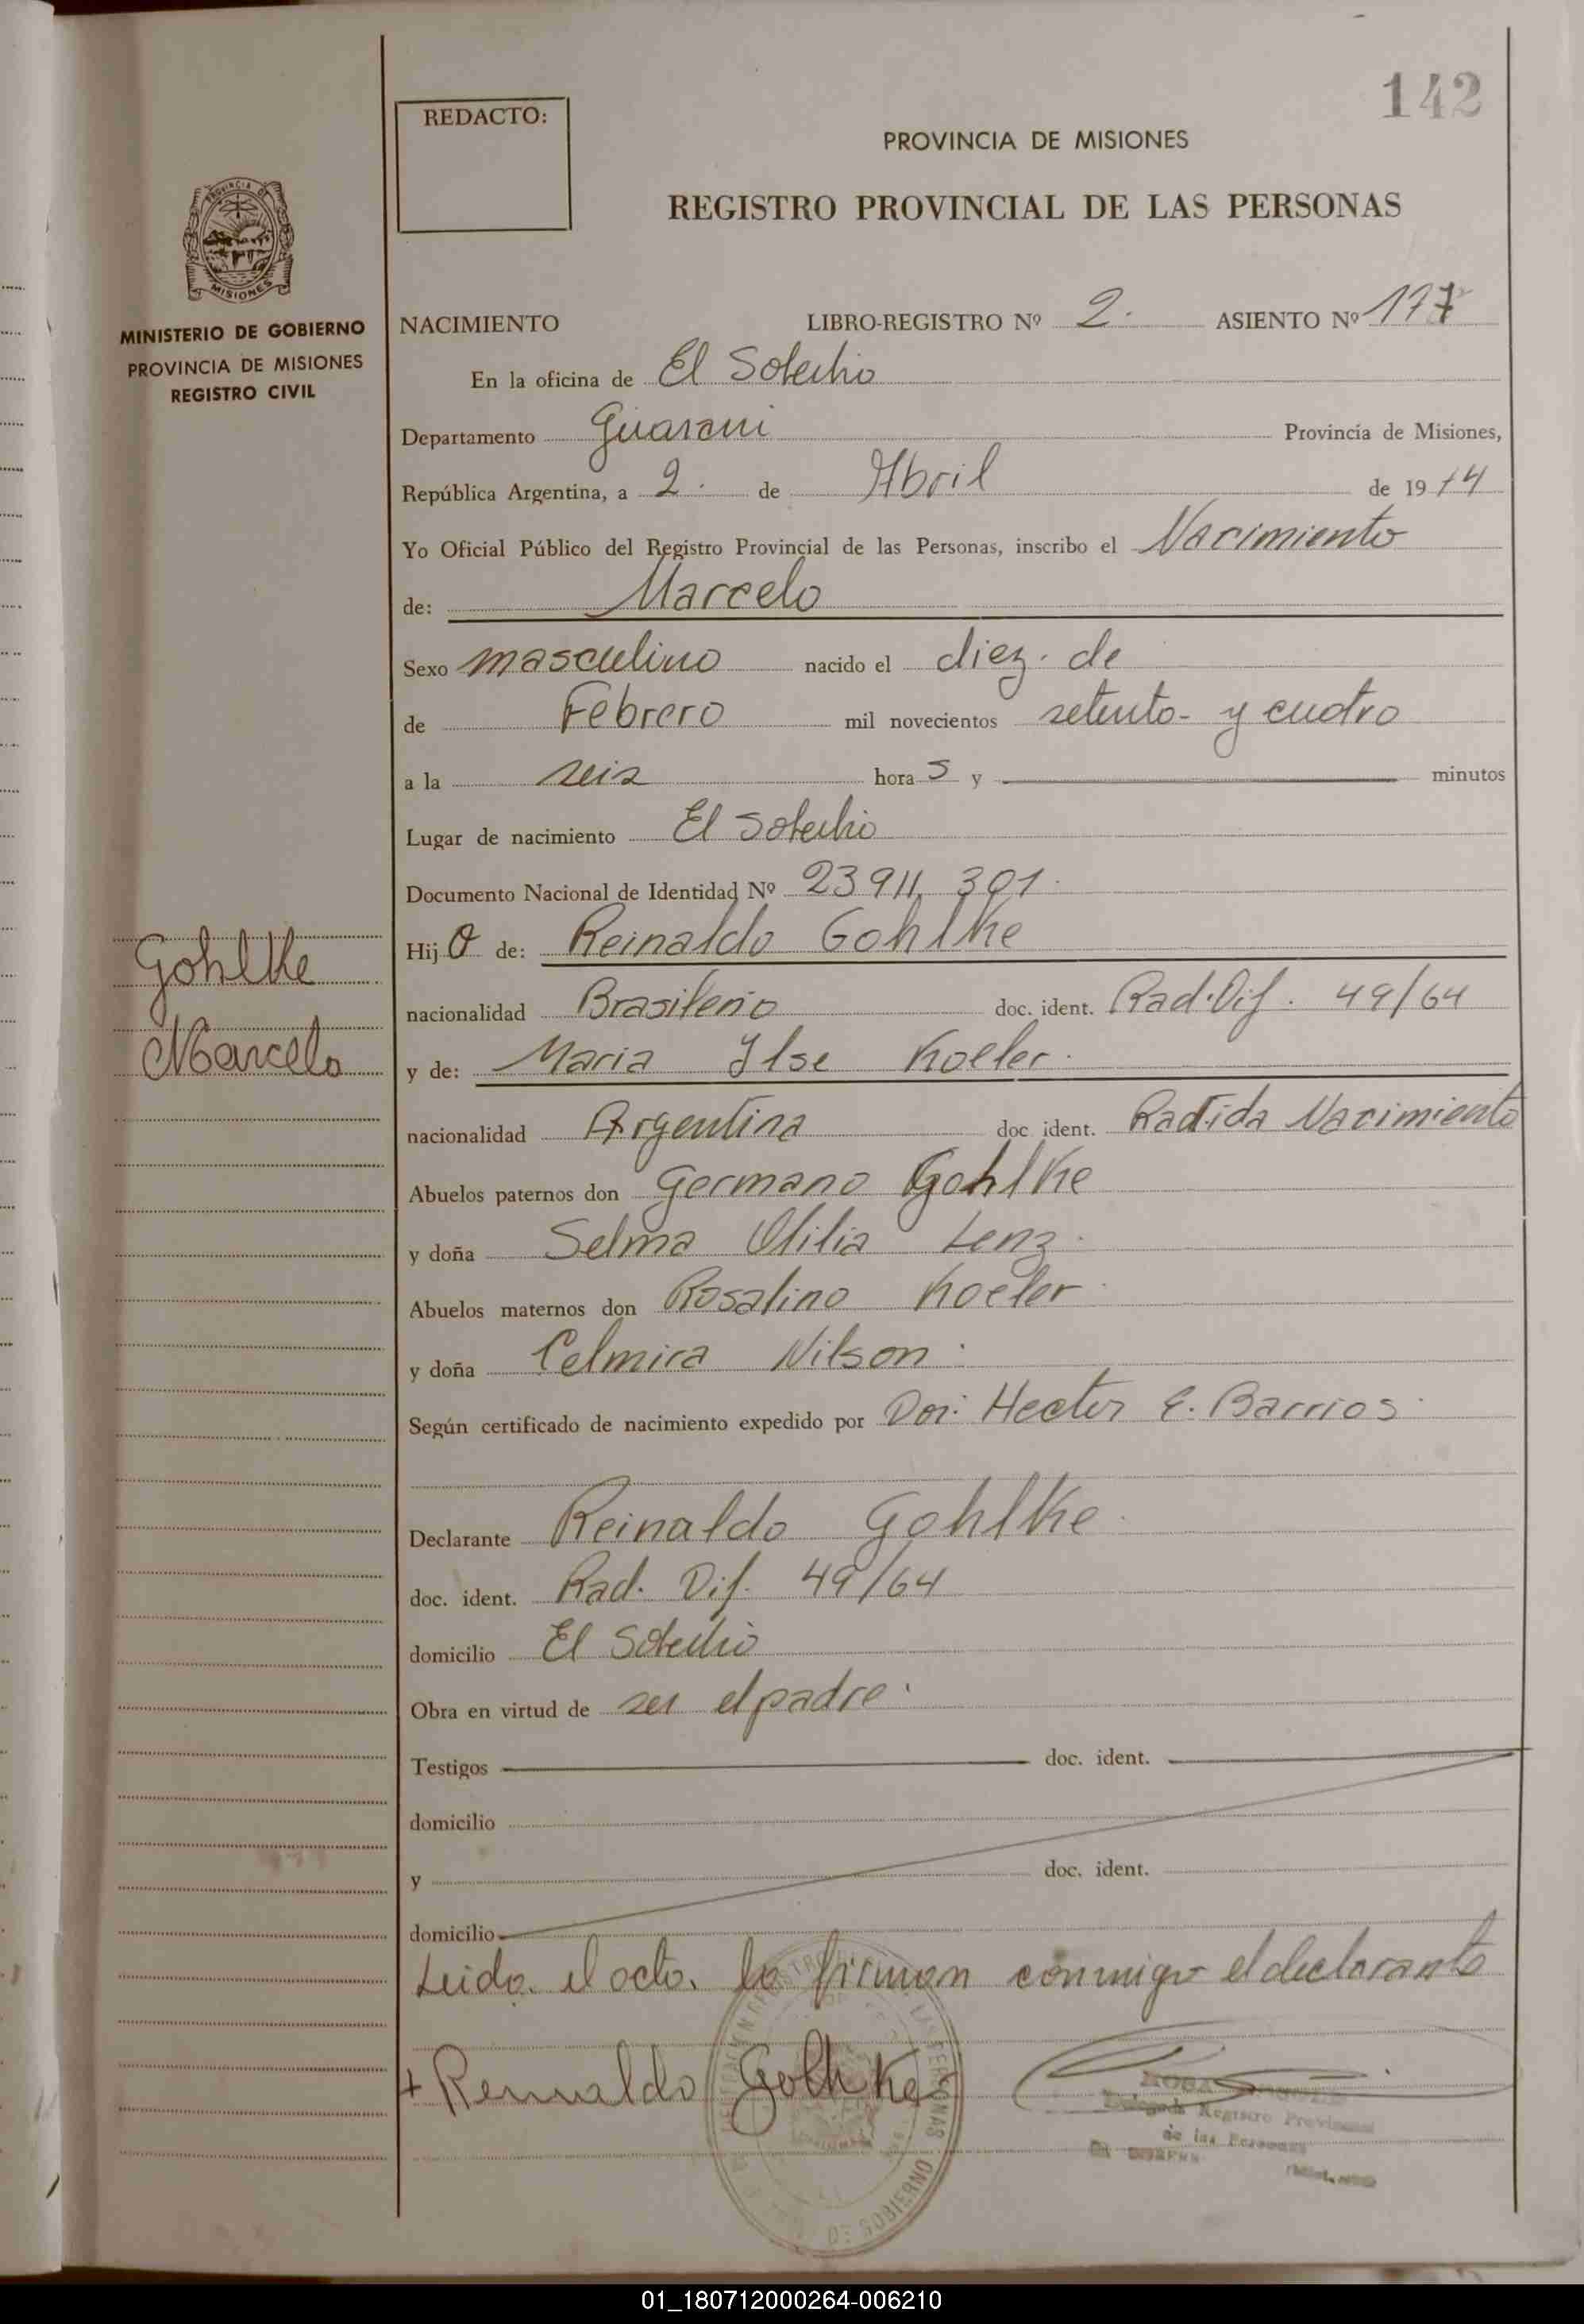 142
REDACTO:
PROVINCIA DE MISIONES
REGISTRO PROVINCIAL DE LAS PERSONAS
MISIONES
MINISTERIO DE GOBIERNO
PROVINCIA DE MISIONES
REGISTRO CIVIL
NACIMIENTO LIBRO-REGISTRO Nº 2. ASIENTO Nº 177
En la oficina de El Soberbio
Departamento Guarani Provincia de Misiones,
República Argentina, a 2. de Abril de 1974
Yo Oficial Público del Registro Provincial de las Personas, inscribo el Nacimiento
de: Marcelo
Sexo masculino nacido el diez. de
de Febrero mil novecientos setenta- y cuatro
a la seis hora s y minutos
Lugar de nacimiento El Soberbio
Documento Nacional de Identidad Nº 23911.301.
Hijo de: Reinaldo Gohlke
Gohlke
nacionalidad Brasileño doc. ident. Rad. Dif. 49/64
Marcelo
y de: Maria Ilse Koeler.
nacionalidad Argentina doc. ident. Nacimiento
Abuelos paternos don Germano Gohlke
y doña Selma Lenz.
Abuelos maternos don Rosalino Koeler.
y doña Celmira Nilson.
Según certificado de nacimiento expedido por Hector E. Barrios.
Declarante Reinaldo Gohlke.
doc. ident. Rad. Dif. 49/64
domicilio El Soberbio
Obra en virtud de ser el padre.
Testigos doc. ident.
domicilio
y doc. ident.
domicilio
Leido. el acto. lo firman conmigo el declarante
+ Reinaldo Gohlke
Delegada Registro Provincial
de las Personas
01_180712000264-006210